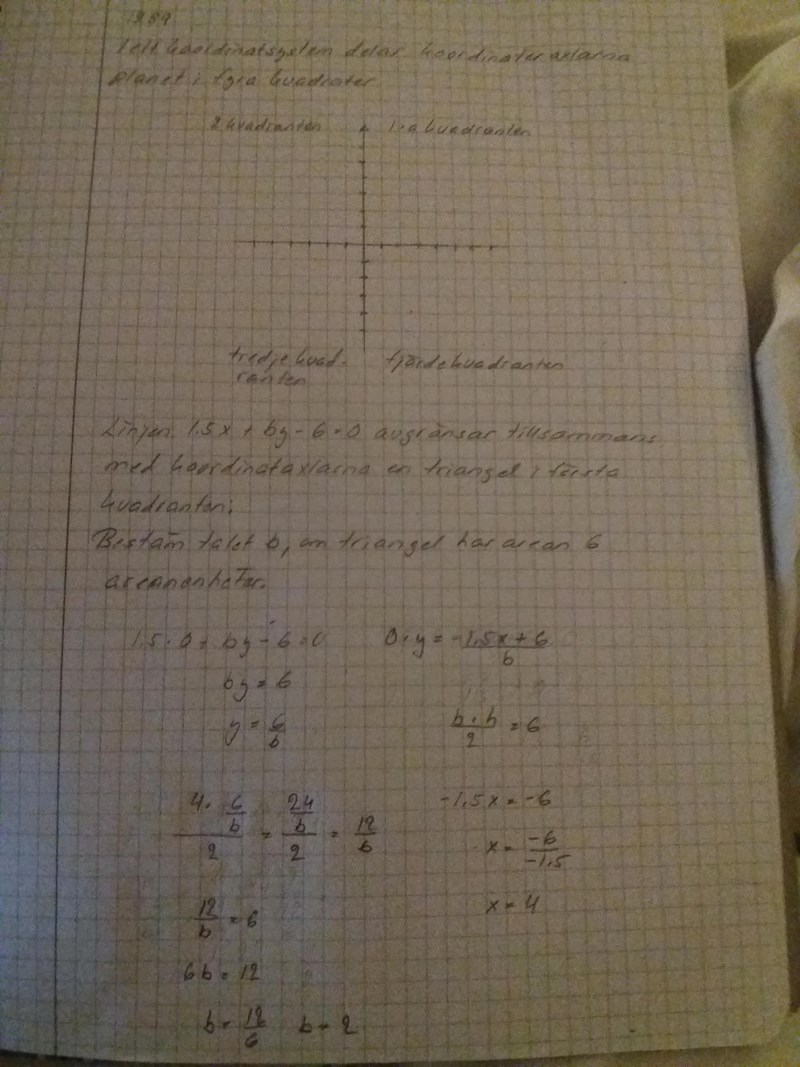 1289
I ett koordinatsystem delar koordinater axlarna
planet i fyra kvadrater
2 kvadranten 1:a kvadranten
tredje kvad- fjärde kvadranten
ranten
Linjen 1.5x + by - 6 = 0 avgränsar tillsammans
med koordinataxlarna en triangel i första
kvadranten;
Bestäm talet b, om triangel har arean 6
areananheter.
1.5 · 0 + by - 6 = 0 0 · y = -1.5x + 6 / b
by = 6
y = 6/b b · h / 2 = 6
4 · 6/b / 2 = 24/b / 2 = 12/b -1.5x = -6
x = -6 / -1.5
12/b = 6 x = 4
6b = 12
b = 12/6 b = 2